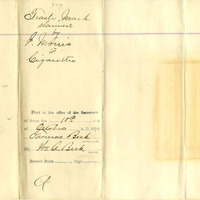 Trade Mark
claimed
by
for
Cigarettes
Filed in the office of the Secretary
of State this 18th day
of October A. D. 187
Thomas Beck
Wm A. Beck
Record Book Page